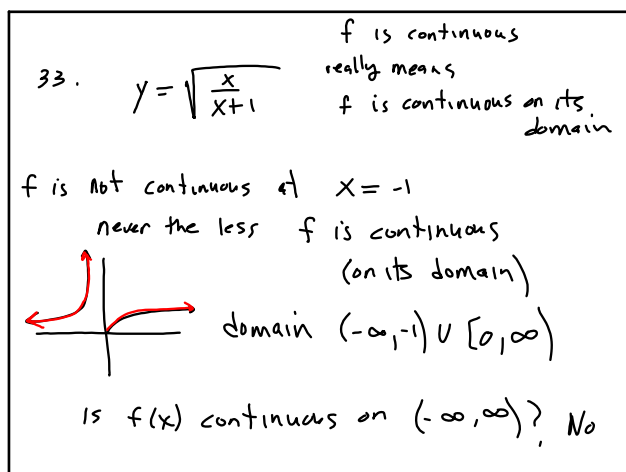 f is continuous
really means
33. y = √(x/(x+1))
f is continuous on its
domain
f is not continuous at x = -1
never the less f is continuous
(on its domain)
domain (-∞,-1) ∪ [0,∞)
Is f(x) continuous on (-∞,∞)? No